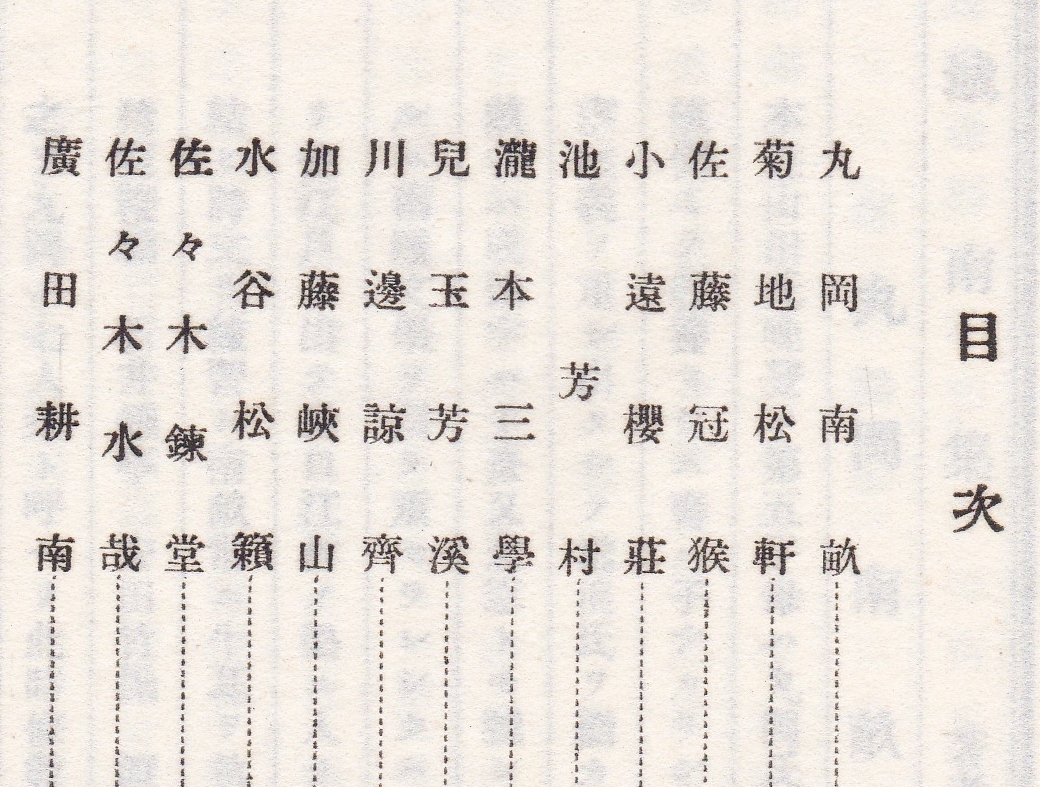 目次
丸岡南畝
菊地松軒
佐藤冠猴
小遠櫻莊
池芳村
瀧本三學
兒玉芳溪
川邊諒齊
加藤峽山
水谷松籟
佐々木鍊堂
佐々木水哉
廣田耕南